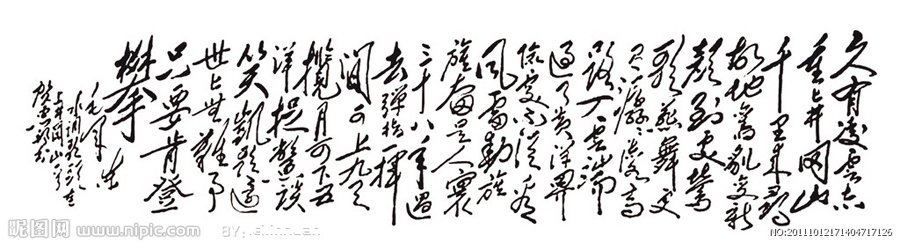 久有凌云志
重上井冈山
千里来寻
故地旧貌变新
颜到处莺
歌燕舞更
有潺潺流水高
路入云端
过了黄洋界
险处不须看
风雷动旌
旗奋是人寰
三十八年过
去弹指一挥
间可上九天
揽月可下五
洋捉鳖谈
笑凯歌还
世上无难事
只要肯登
攀
毛泽东
水调歌头
上井冈山
昵图网 www.nipic.com
BY: shinhuan
NO:20111012171404717126